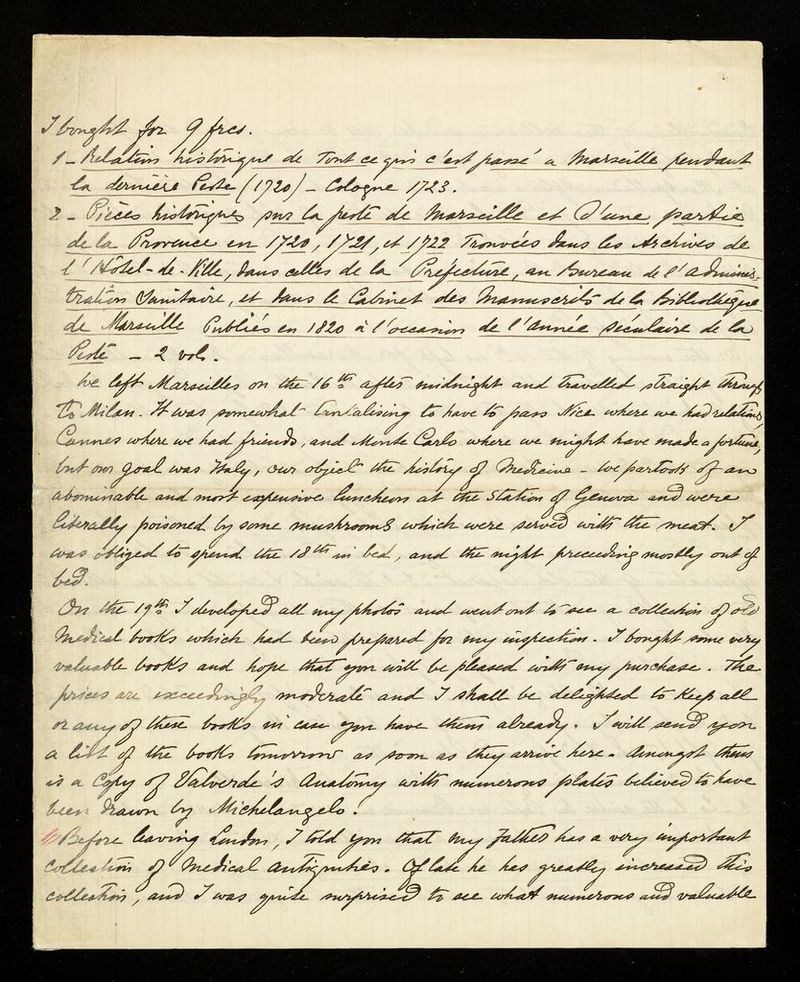 I bought for 9 frcs.
1 - Relation historique de Tout ce qui c'est passé a Marseille pendant
la dernière Peste (1720) - Cologne 1723.
2 - Pièces historiques sur la peste de Marseille et d'une partie
de la Provence en 1720, 1721, et 1722 Trouvées dans les Archives de
l'Hôtel-de-Ville, dans celles de la Préfecture, au Bureau de l'Adminis-
tration Sanitaire, et dans le Cabinet des Manuscrits de la Bibliothèque
de Marseille Publiés en 1820 à l'occasion de l'année séculaire de la
Peste - 2 vols.
We left Marseilles on the 16th after midnight and travelled straight through
to Milan. It was somewhat tantalising to have to pass Nice where we had relations,
Cannes where we had friends, and Monte Carlo where we might have made a fortune,
but our goal was Italy, our object the history of Medicine - we partook of an
abominable and most expensive luncheon at the Station of Genova and were
liberally poisoned by some mushrooms which were served with the meat. I
was obliged to spend the 18th in bed, and the night preceeding mostly out of
bed.
On the 19th I developed all my photos and went out to see a collection of old
Medical books which had been prepared for my inspection. I bought some very
valuable books and hope that you will be pleased with my purchase. The
prices are exceedingly moderate and I shall be delighted to keep all
or any of these books in case you have them already. I will send you
a list of the books tomorrow as soon as they arrive here. Amongst them
is a Copy of Valverde's Anatomy with numerous plates believed to have
been drawn by Michelangelo.
Before leaving London, I told you that my Father has a very important
Collection of Medical Antiquities. Of late he has greatly increased this
collection, and I was quite surprised to see what numerous and valuable